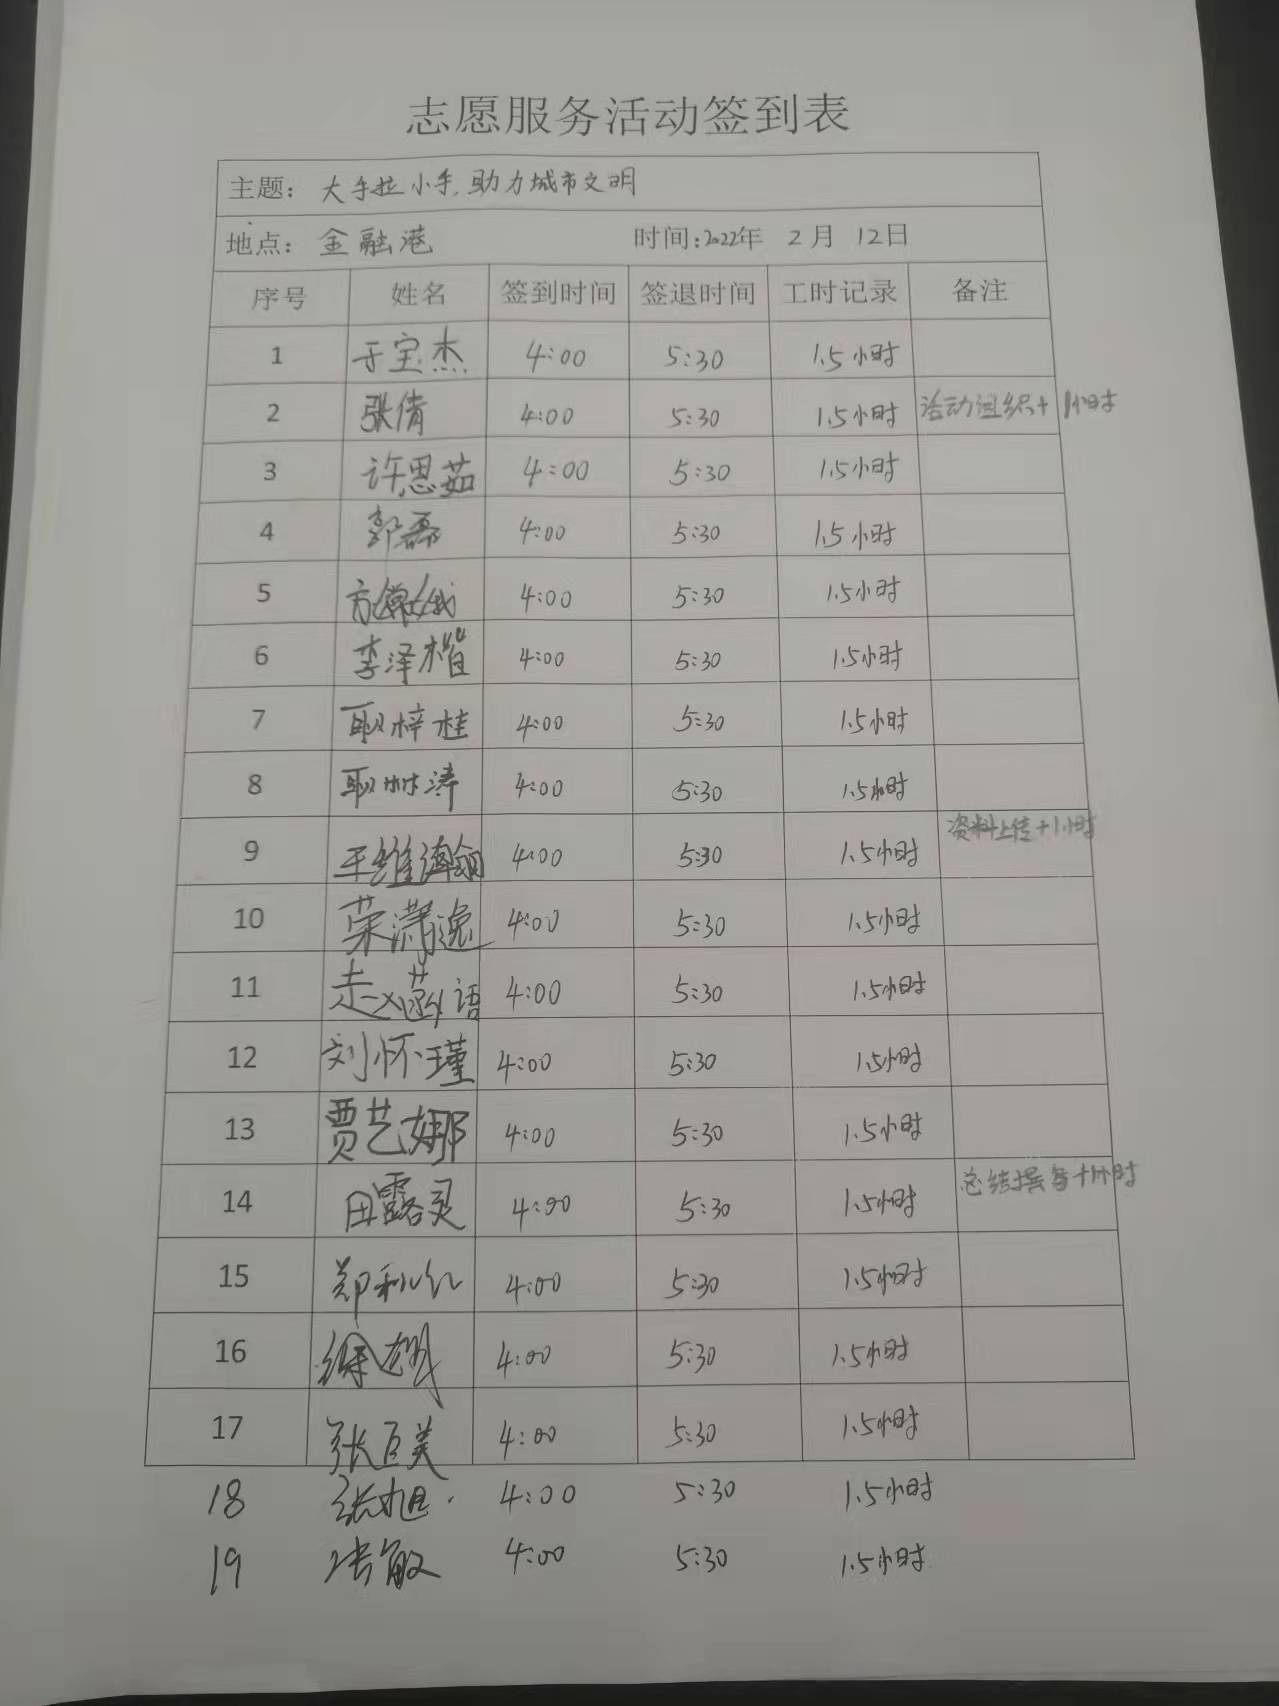 志愿服务活动签到表
主题：大手拉小手，助力城市文明
地点：金融港 时间:2022年 2月 12日
序号 姓名 签到时间 签退时间 工时记录 备注
1 于宝杰 4:00 5:30 1.5小时
2 张倩 4:00 5:30 1.5小时 活动组织+1小时
3 许思茹 4:00 5:30 1.5小时
4 郭磊 4:00 5:30 1.5小时
5 方嫦娥 4:00 5:30 1.5小时
6 李泽楷 4:00 5:30 1.5小时
7 耿梓桂 4:00 5:30 1.5小时
8 耿树涛 4:00 5:30 1.5小时
9 于维瀚 4:00 5:30 1.5小时 资料上传+1小时
10 荣潇逸 4:00 5:30 1.5小时
11 赵菡语 4:00 5:30 1.5小时
12 刘怀瑾 4:00 5:30 1.5小时
13 贾艺娜 4:00 5:30 1.5小时
14 田露灵 4:00 5:30 1.5小时 总结撰写+1小时
15 郑利红 4:00 5:30 1.5小时
16 4:00 5:30 1.5小时
17 张巨美 4:00 5:30 1.5小时
18 张旭 4:00 5:30 1.5小时
19 张敏 4:00 5:30 1.5小时